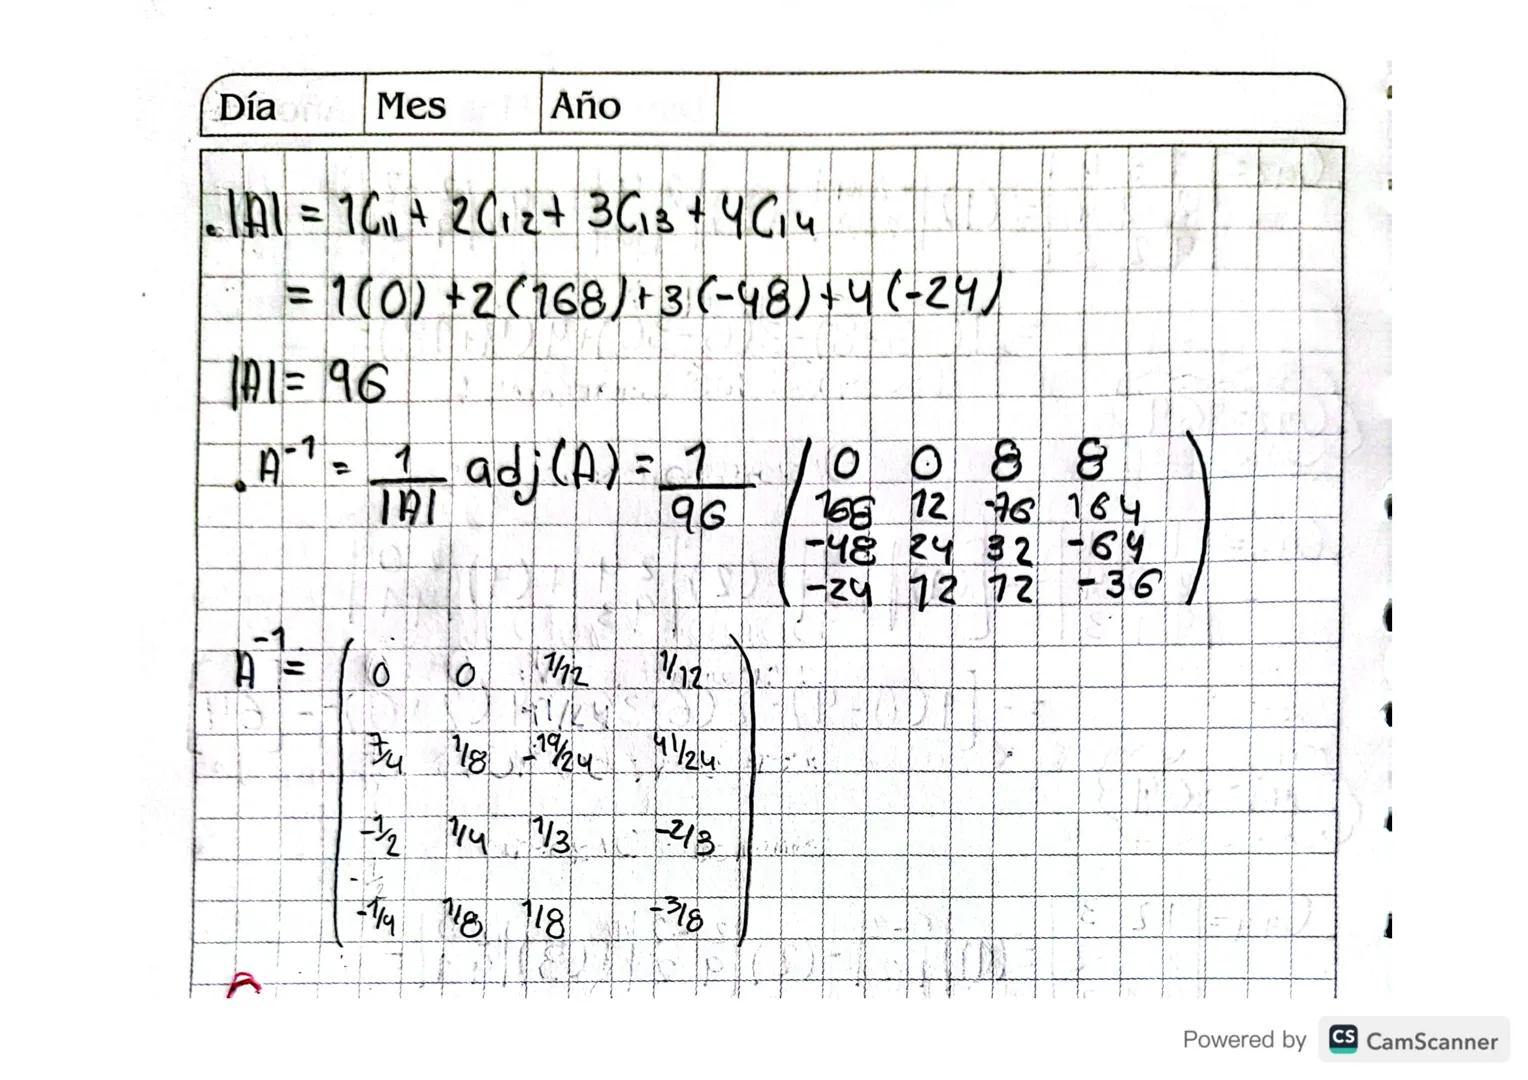 Día Mes Año
. |A| = 1C11 + 2C12 + 3C13 + 4C14
= 1(0) + 2(168) + 3(-48) + 4(-24)
|A| = 96
. A⁻¹ = 1/|A| adj(A) = 1/96 ( 0 0 8 8
168 12 -76 164
-48 24 32 -64
-24 12 12 -36 )
A⁻¹ = ( 0 0 1/12 1/12
7/4 1/8 -19/24 41/24
-1/2 1/4 1/3 -2/3
-1/4 1/8 1/8 -3/8 )
Powered by CS CamScanner